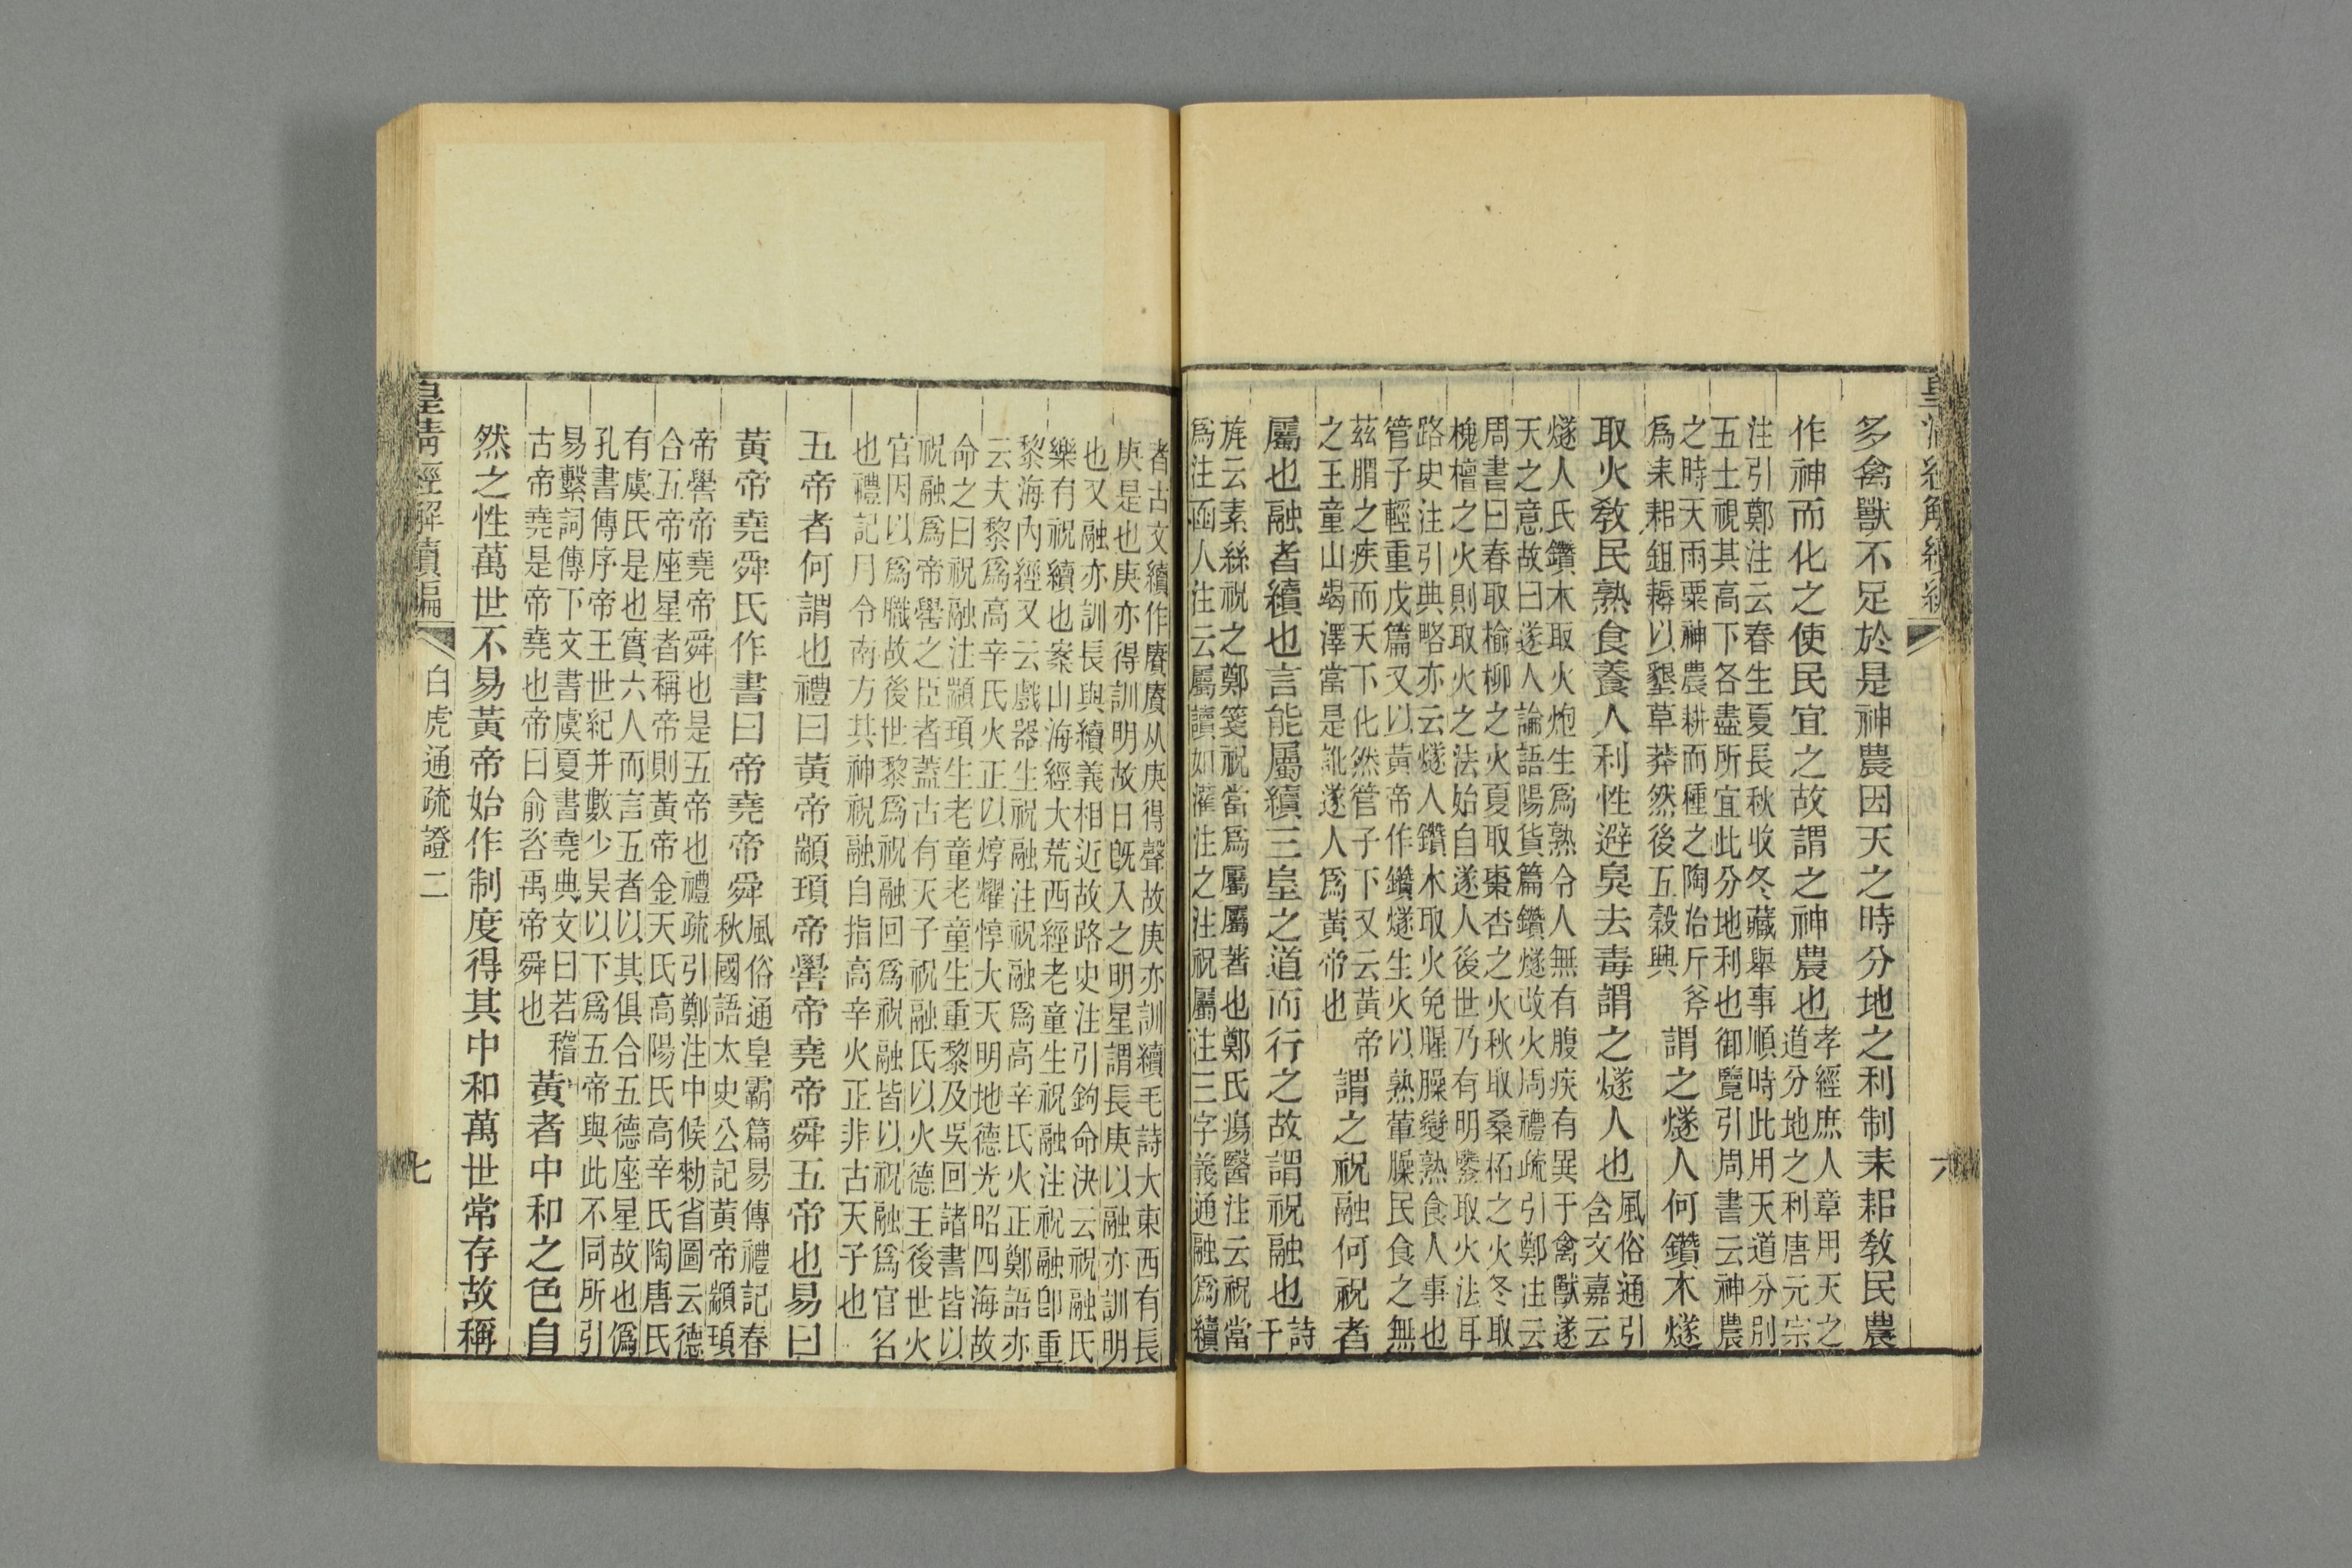 皇清經解續編
六
多禽獸不足於是神農因天之時分地之利制耒耜敎民農
作神而化之使民宜之故謂之神農也
孝經庶人章用天之
道分地之利唐元宗
注引鄭注云春生夏長秋收冬藏舉事順時此用天道分別
五土視其高下各盡所宜此分地利也御覽引周書云神農
之時天雨粟神農耕而種之陶冶斤斧
爲耒耜鉏耨以墾草莽然後五穀興
謂之燧人何鑽木燧
取火敎民熟食養人利性避臭去毒謂之燧人也
風俗通引
含文嘉云
燧人氏鑽木取火炮生爲熟令人無有腹疾有異于禽獸遂
天之意故曰遂人論語陽貨篇鑽燧改火周禮疏引鄭注云
周書曰春取榆柳之火夏取棗杏之火秋取桑柘之火冬取
槐檀之火則取火之法始自遂人後世乃有明取火法耳
路史注引典略亦云燧人鑽木取火免腥臊變熟食人事也
管子輕重戊篇又以黃帝作鑽燧生火以熟葷臊民食之無
茲䐔之疾而天下化然管子下又云黃帝
之王童山竭澤當是訛遂人爲黃帝也
謂之祝融何祝者
屬也融者續也言能屬續三皇之道而行之故謂祝融也
詩
干
旄云素絲祝之鄭箋祝當爲屬屬著也鄭氏瘍醫注云祝當
爲注函人注云屬讀如灌注之注祝屬注三字義通融爲續
者古文續作賡賡从庚得聲故庚亦訓續毛詩大東西有長
庚是也庚亦得訓明故日旣入之明星謂長庚以融亦訓明
也又融亦訓長與續義相近故路史注引鉤命決云祝融氏
樂有祝續也案山海經大荒西經老童生祝融注祝融卽重
黎海內經又云戲器生祝融注祝融爲高辛氏火正鄭語亦
云夫黎爲高辛氏火正以焞耀惇大天明地德光昭四海故
命之曰祝融注顓頊生老童老童生重黎及吳回諸書皆以
祝融爲帝嚳之臣者蓋古有天子祝融氏以火德王後世火
官因以爲職故後世黎爲祝融回爲祝融皆以祝融爲官名
也禮記月令南方其神祝融自指高辛火正非古天子也
五帝者何謂也禮曰黃帝顓頊帝嚳帝堯帝舜五帝也易曰
黃帝堯舜氏作書曰帝堯帝舜
風俗通皇霸篇易傳禮記春
秋國語太史公記黃帝顓頊
帝嚳帝堯帝舜也是五帝也禮疏引鄭注中候勑省圖云德
合五帝座星者稱帝則黃帝金天氏高陽氏高辛氏陶唐氏
有虞氏是也實六人而言五者以其俱合五德座星故也僞
孔書傳序帝王世紀并數少昊以下爲五帝與此不同所引
易繫詞傳下文書虞夏書堯典文曰若稽
古帝堯是帝堯也帝曰俞咨禹帝舜也
黃者中和之色自
然之性萬世不易黃帝始作制度得其中和萬世常存故稱
皇清經解續編
白虎通疏證二
七